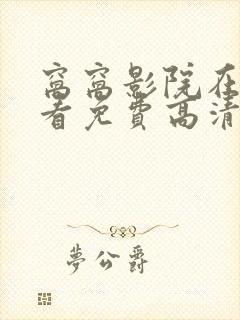 窝窝影院在
看免费高清
梦公爵